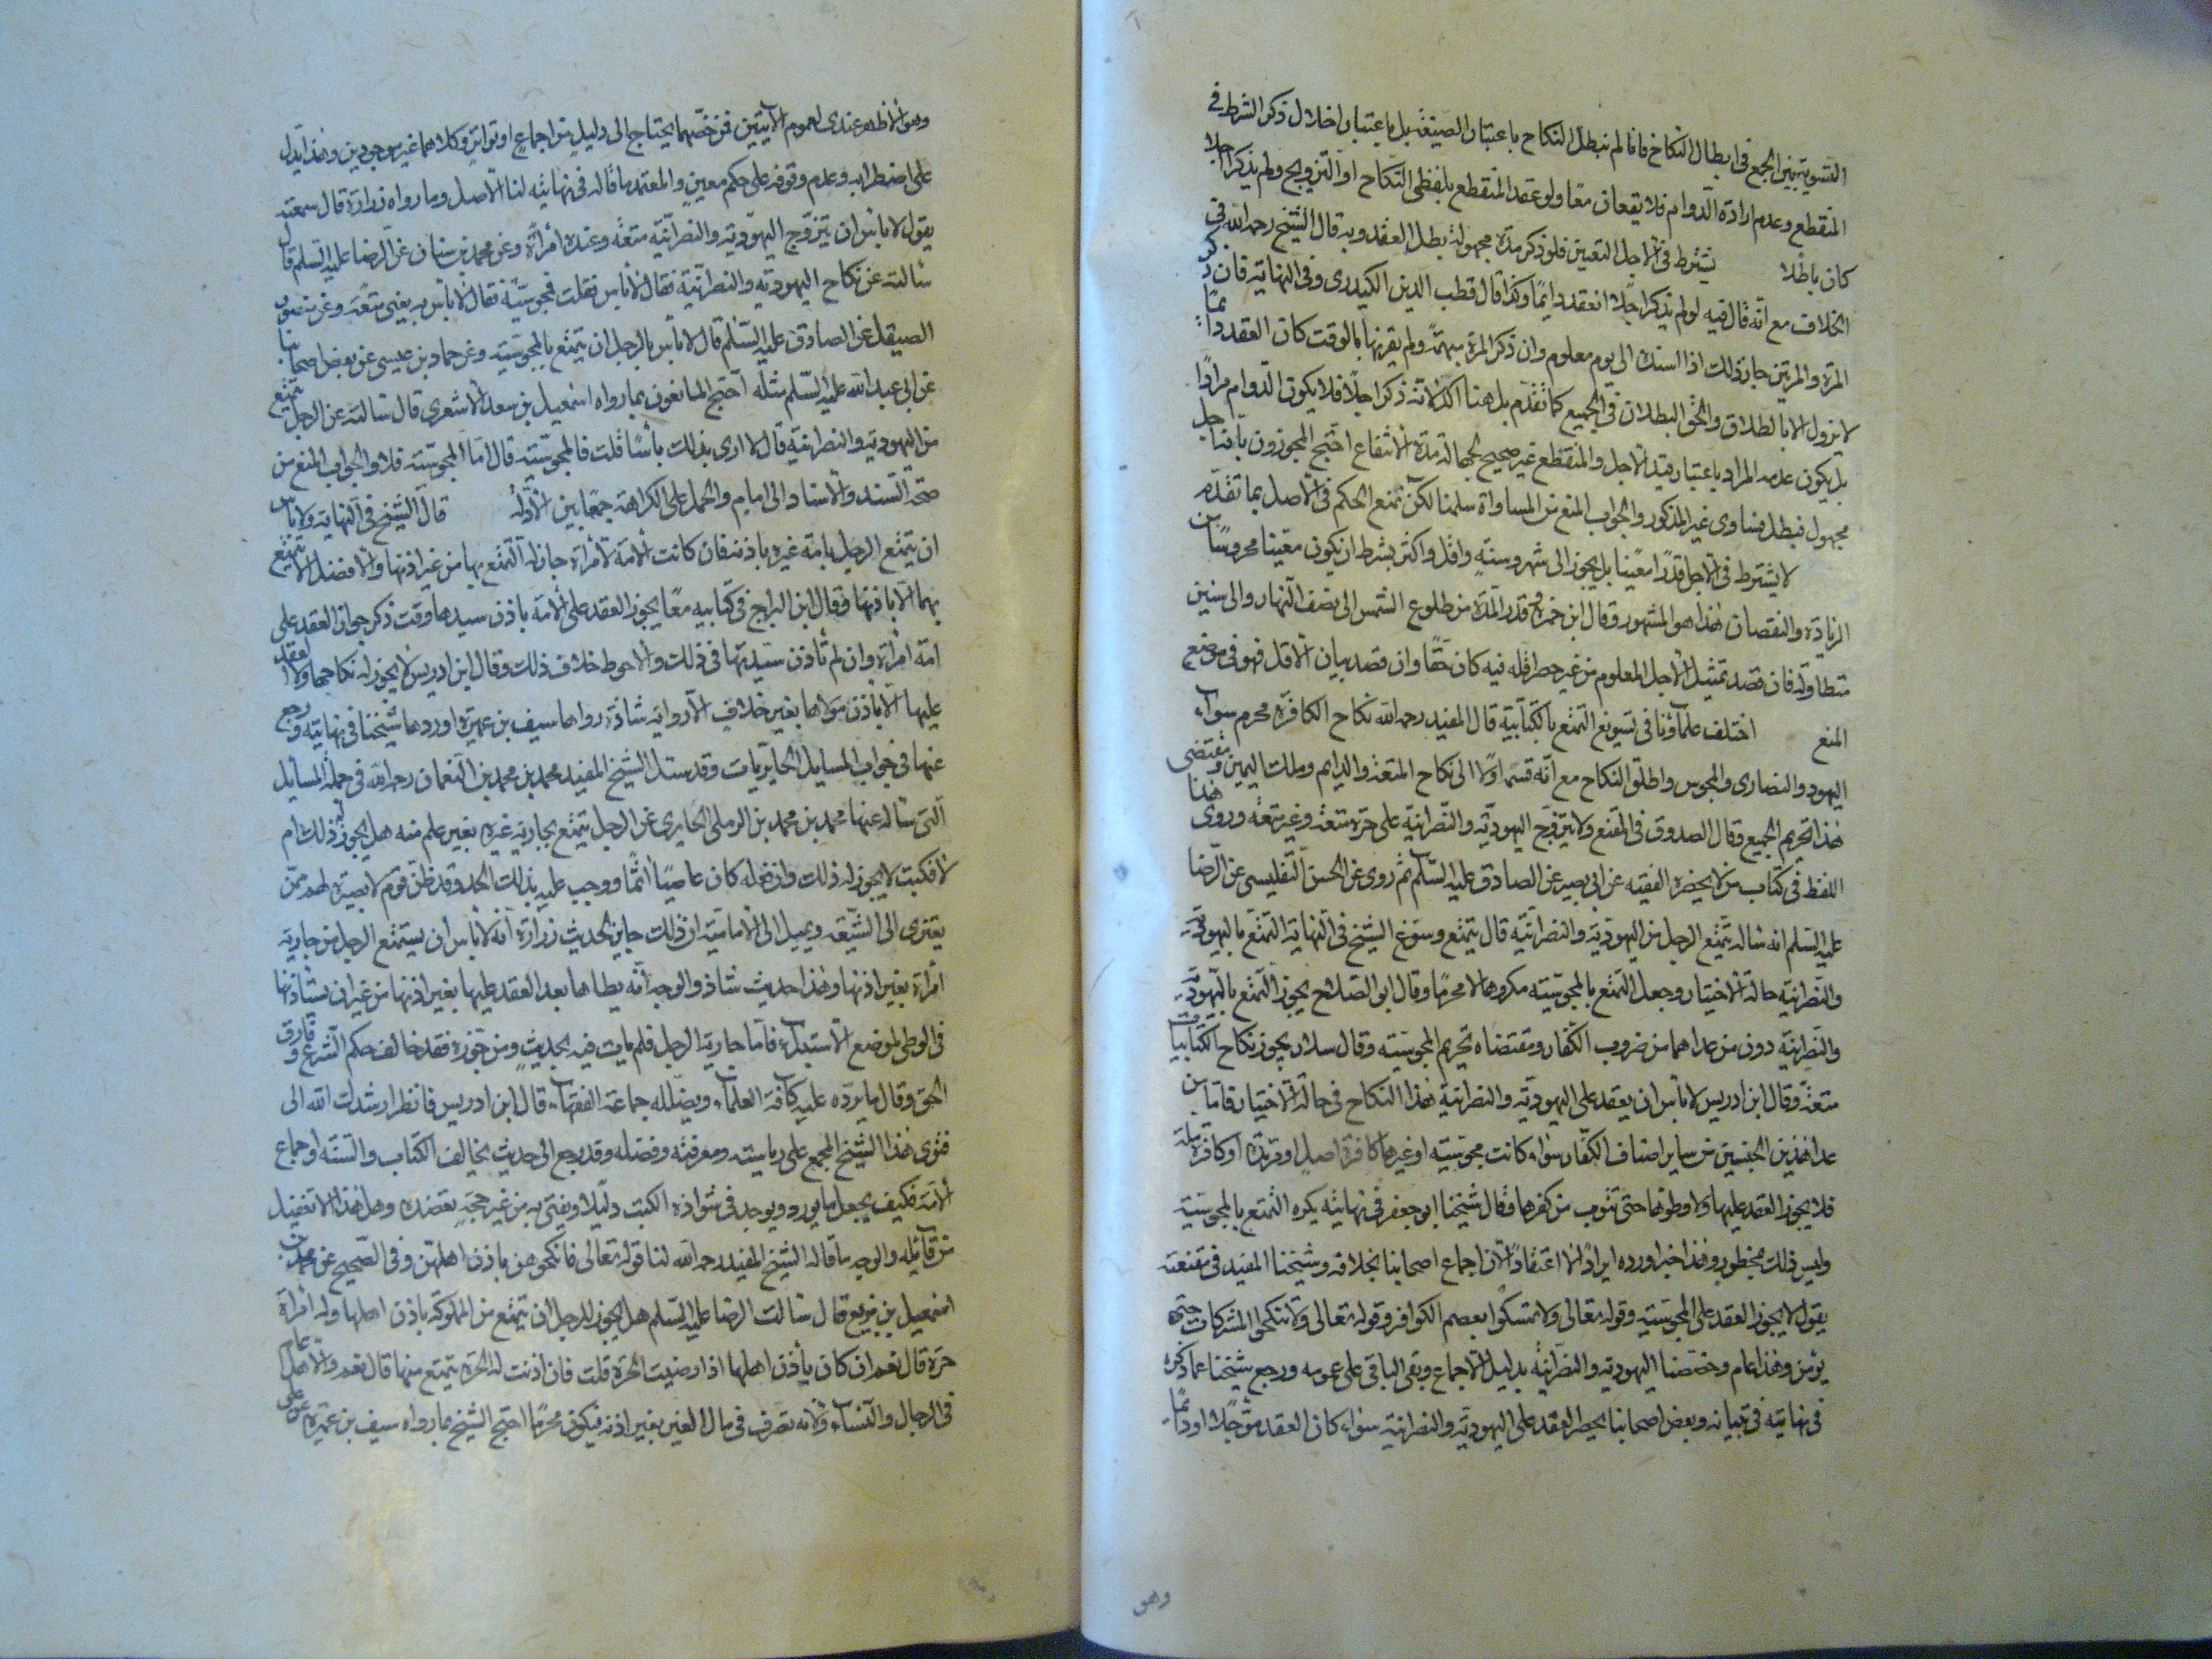 التسوية بين الجمع في ابطال النكاح فانا لم نبطل النكاح باعتبار الصيغة بل باعتبار اخلال ذكر الشرط في
المنقطع وعدم ارادة الدوام فلا يقعان معا ولو عقد المنقطع بلفظي النكاح او التزويج ولم يذكر اجلا
كان باطلا يشترط في الاجل التعيين فلو ذكر مدة مجهولة بطل العقد وبه قال الشيخ رحمه الله في
الخلاف مع انه قال فيه لو لم يذكر اجلا انعقد دايما وكذا قال قطب الدين الكيدري وفي النهاية فان ذكر
المرة والمرتين جاز ذلك اذا اسند الى يوم معلوم وان ذكر المرة مبهمة ولم يقرنها بالوقت كان العقد دائما
لا يزول الا بالطلاق والحق البطلان في الجميع كما تقدم بل هنا اكد لانه ذكر اجلا فلا يكون الدوام مرادا
بل يكون عدمه المراد باعتبار قيد الاجل والمنقطع غير صحيح لجهالة مدة الانتفاع احتج المجوزون بانه اجل
مجهول فبطل فساوى غير المذكور والجواب المنع من المساواة سلمنا لكن نمنع الحكم في الاصل بما تقدم
لا يشترط في الاجل قدرا معينا بل يجوز الى شهر وسنة واقل واكثر بشرط ان يكون معينا محروسا من
الزيادة والنقصان هذا هو المشهور وقال ابن حمزة وقدر المدة من طلوع الشمس الى نصف النهار والى سنين
متطاولة فان قصد تمثيل الاجل المعلوم من غير حصر اقله فيه كان حقا وان قصد بيان الاقل فهو في موضع
المنع اختلف علماؤنا في تسويغ التمتع بالكتابية قال المفيد رحمه الله نكاح الكافرة محرم سواء
اليهود والنصارى والمجوس واطلق النكاح مع انه قسمه اولا الى نكاح المتعة والدايم وملك اليمين ومقتضى
هذا تحريم الجميع وقال الصدوق في المقنع ولا يتزوج اليهودية والنصرانية على حرة متعة وغير متعة وروى هذا
اللفظ في كتاب من لا يحضره الفقيه عن ابي بصير عن الصادق عليه السلم ثم روى عن الحسن التفليسي عن الرضا
عليه السلم انه ساله يتمتع الرجل من اليهودية والنصرانية قال يتمتع وسوغ الشيخ في النهاية التمتع باليهودية
والنصرانية حالة الاختيار وجعل التمتع بالمجوسية مكروها لا محرما وقال ابو الصلاح يجوز التمتع باليهودية
والنصرانية دون من عداهما من ضروب الكفار ومقتضاه تحريم المجوسية وقال سلار يجوز نكاح الكتابيات
متعة وقال ابن ادريس لا باس ان يعقد على اليهودية والنصرانية هذا النكاح في حالة الاختيار فاما من
عدا هذين الجنسين من ساير اصناف الكفار سواء كانت مجوسية او غيرها كافرة اصل او مرتدة او كافرة ملة
فلا يجوز العقد عليها ولا وطؤها حتى تتوب من كفرها وقال شيخنا ابو جعفر في نهايته يكره التمتع بالمجوسية
وليس ذلك بمحظور وهذا خبر اورده ايرادا لا اعتقادا لان اجماع اصحابنا بخلافه وشيخنا المفيد في مقنعته
يقول لا يجوز العقد على المجوسية وقوله تعالى ولا تمسكوا بعصم الكوافر وقوله تعالى ولا تنكحوا المشركات حتى
يؤمن وهذا عام وخصصنا اليهودية والنصرانية بدليل الاجماع وبقي الباقي على عمومه ورجع شيخنا عما ذكره
في نهايته في تبيانه وبعض اصحابنا يحظر العقد على اليهودية والنصرانية سواء كان العقد مؤجلا او دائما
وهو
وهو الاظهر عندي لعموم الايتين فمن خصهما يحتاج الى دليل من اجماع او تواتر وكلاهما غير موجودين وهذا يدل
على اضطرابه وعدم وقوفه على حكم معين والمعتمد ما قاله في نهايته لنا الاصل وما رواه زرارة قال سمعته
يقول لا باس ان يتزوج اليهودية والنصرانية متعة وعنده امراة وعن محمد بن سنان عن الرضا عليه السلم قال
سالته عن نكاح اليهودية والنصرانية فقال لا باس فقلت فمجوسية فقال لا باس به يعني متعة وعن منصور
الصيقل عن الصادق عليه السلم قال لا باس بالرجل ان يتمتع بالمجوسية وعن حماد بن عيسى عن بعض اصحابنا
عن ابي عبد الله عليه السلم مثله احتج المانعون بما رواه اسمعيل بن سعد الاشعري قال سالته عن الرجل يتمتع
من اليهودية والنصرانية قال لا ارى بذلك باسا قلت فالمجوسية قال اما المجوسية فلا والجواب المنع من
صحة السند والاسناد الى امام والحمل على الكراهة جمعا بين الادلة قال الشيخ في النهاية ولا باس
ان يتمتع الرجل بامة غيره باذنه فان كانت الامة لامراة جاز له التمتع بها من غير اذنها والافضل الا يتمتع
بها الا باذنها وقال ابن البراج في كتابيه معا يجوز العقد على الامة باذن سيدها وقت ذكر جواز العقد على
امة امراة وان لم تاذن سيدتها في ذلك والاحوط خلاف ذلك وقال ابن ادريس لا يجوز له نكاحها ولا العقد
عليها الا باذن مولاها بغير خلاف الا رواية شاذة رواها سيف بن عميرة اوردها شيخنا في نهايته ورجع
عنها في جواب المسايل الحايريات وقد سئل الشيخ المفيد محمد بن محمد بن النعمان رحمه الله في جملة المسائل
التي ساله عنها محمد بن محمد بن الرملي الحايري عن الرجل يتمتع بجارية غيره بغير علم منه هل يجوز له ذلك ام
لا فكتب لا يجوز له ذلك وان فعله كان عاصيا اثما ووجب عليه بذلك الحد وقد ظن قوم لا بصيرة لهم ممن
يعتزى الى الشيعة ويميل الى الامامية ان ذلك جايز لحديث زرارة انه لا باس ان يستمتع الرجل من جارية
امراة بغير اذنها وهذا حديث شاذ والوجه انه يطاها بعد العقد عليها بغير اذنها من غير ان يستاذنها
في الوطي لموضع الاستبراء فاما جارية الرجل فلم يات فيه بحديث ومن جوزه فقد خالف حكم الشرع وفارق
الحق وقال ما يرده عليه كافة العلماء ويضلله جماعة الفقهاء قال ابن ادريس فانظر ارشدك الله الى
فتوى هذا الشيخ المجمع على رياسته ومعرفته وفضله وقد رجع الى حديث يخالف الكتاب والسنة واجماع
الامة فكيف يجعل ما يورد ويوجد في شواذ الكتب دليلا ويفتى به من غير حجة تعضده وهل هذا الا تغفيل
من قائله والوجه ما قاله الشيخ المفيد رحمه الله لنا قوله تعالى فانكحوهن باذن اهلهن وفي الصحيح عن محمد بن
اسمعيل بن بزيع قال سالت الرضا عليه السلم هل يجوز للرجل ان يتمتع من المملوكة باذن اهلها وله امراة
حرة قال نعم ان كان باذن اهلها اذا رضيت الحرة قلت فان اذنت له الحرة يتمتع منها قال نعم والاهل عام
في الرجال والنساء ولانه تصرف في مال الغير بغير اذنه فيكون محرما احتج الشيخ بما رواه سيف بن عميرة عن علي